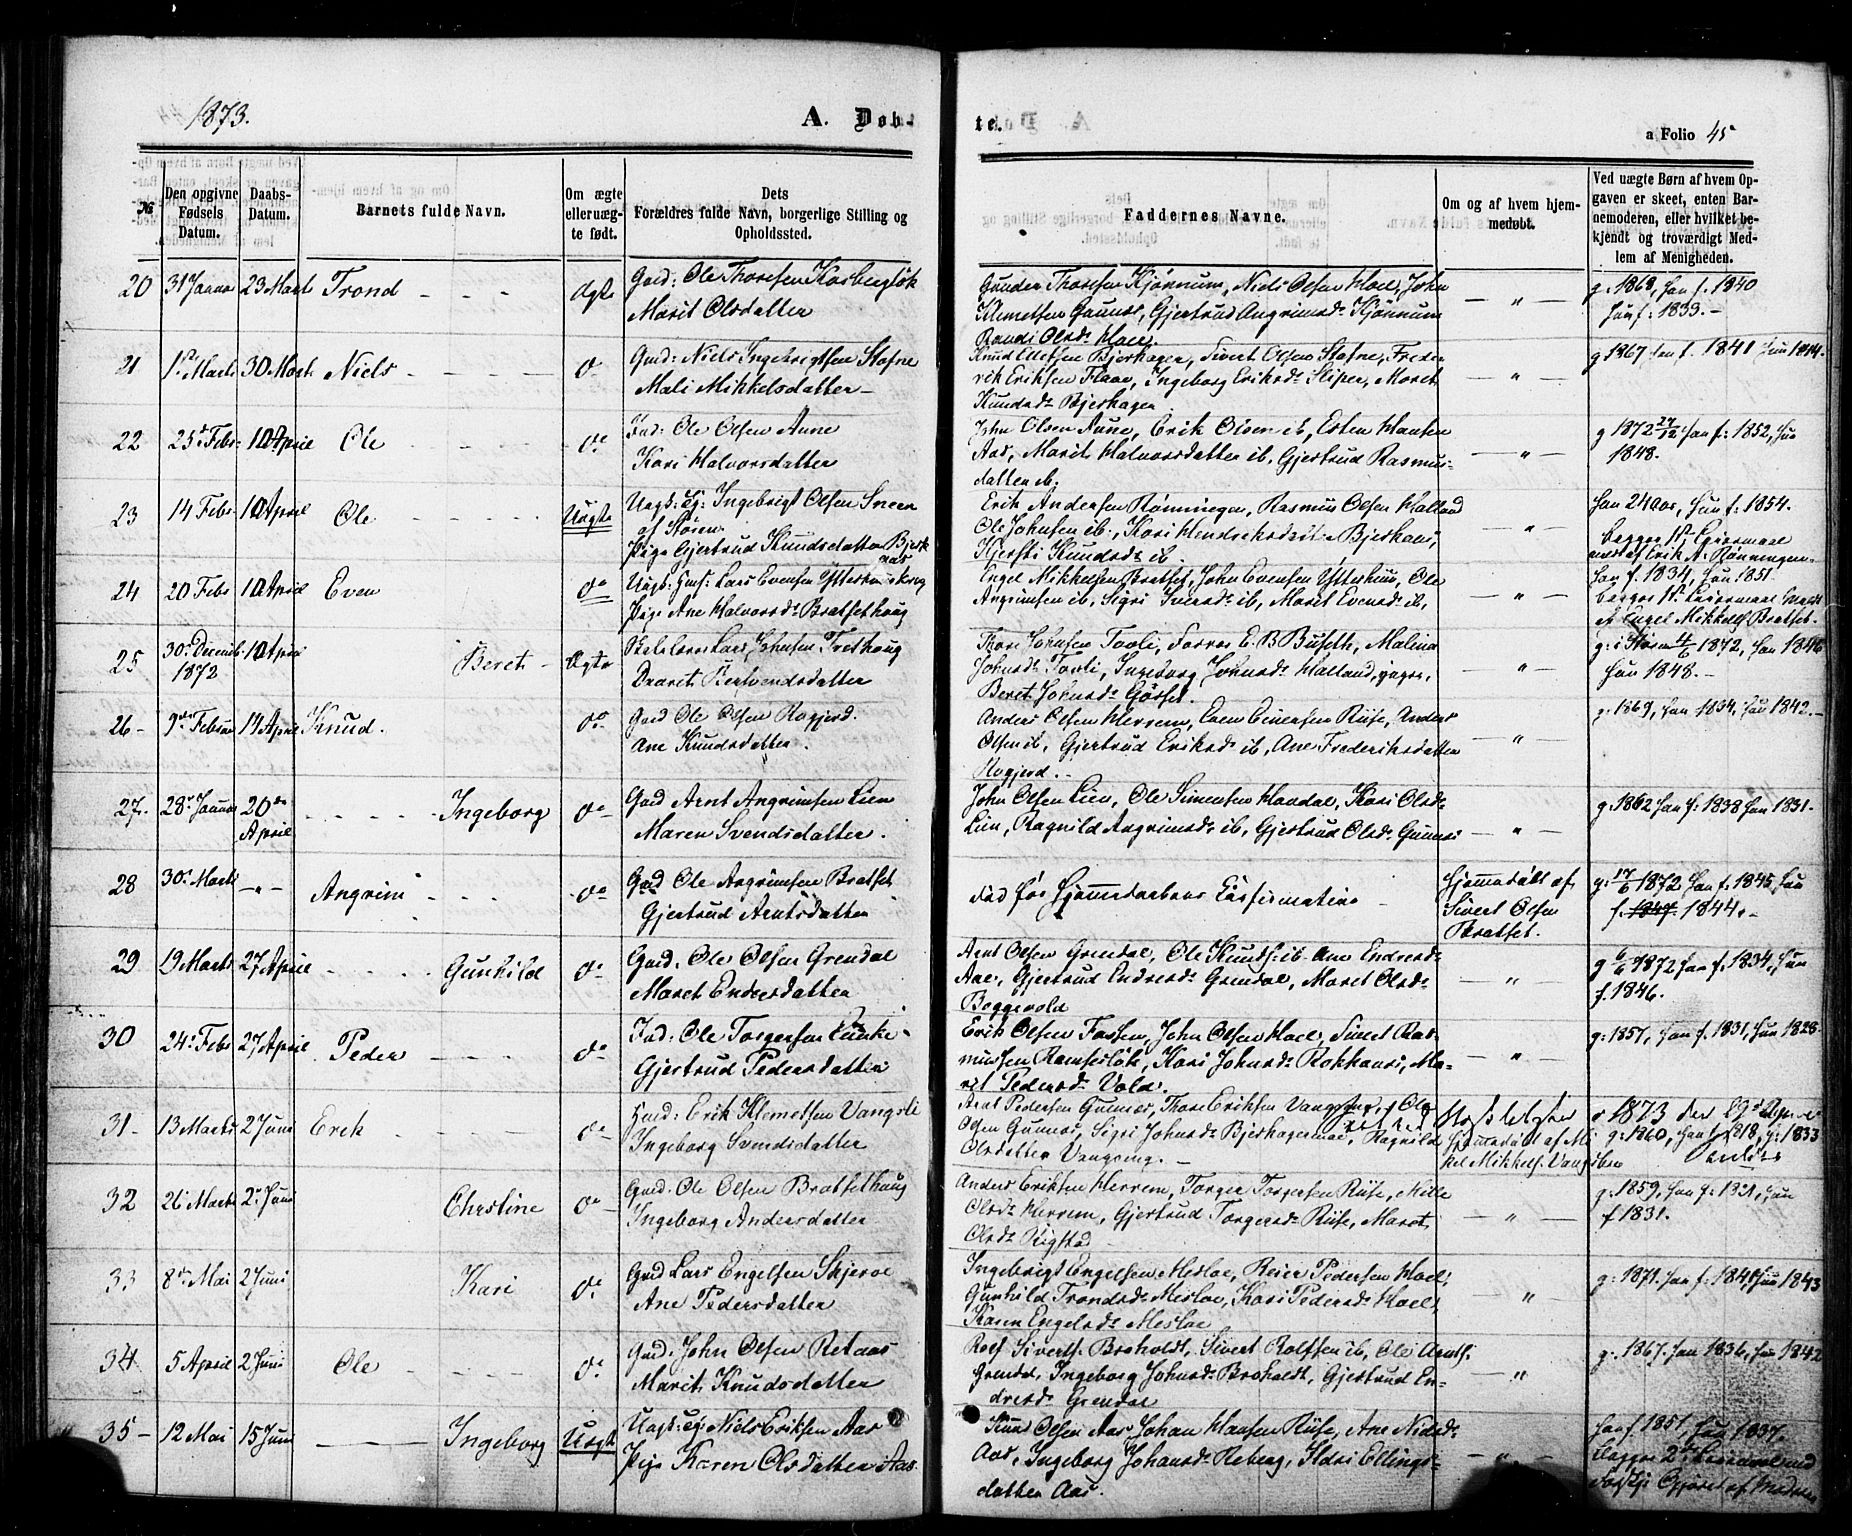 1873.
A. Døb-
te.
a Folio 45
№
Den opgivne Fødsels Datum.
Daabs-Datum.
Barnets fulde Navn.
Om ægte eller uægte født.
Dets Forældres fulde Navn, borgerlige Stilling og Opholdssted.
Faddernes Navne.
Om og af hvem hjemmedøbt.
Ved uægte Børn af hvem Opgaven er skeet, enten Barnemoderen, eller hvilket bekjendt og troværdigt Medlem af Menigheden.
20 31 Januar 23 Marts Trond Ægte Gaard: Ole Thoresen
Marit Olsdatter
Gunder Thoresen Kjønnum, Niels Olsen Hoel, John
Klemetsen Gunnes, Gjertrud Angrimsd: Kjønnum
Randi Olsd: Hoel.
g: 1868, han f. 1840
hun f: 1833.
21 1ste Marts 30 Marts Niels do Gaard: Niels Ingebrigtsen Stafne
Mali Mikkelsdatter
Knud Ellefsen Bjerhagen, Sivert Olsen Stafne, Frede-
rik Eriksen Flaae, Ingeborg Eriksd: Sliper, Maret
Knudsd: Bjerhagen
g 1867 han f. 1841 hun 1844.
22 25 Febr: 10 April Ole do Ind: Ole Olsen Aune
Kari Halvorsdatter
John Olsen Aune, Erik Olsen ib, Esten Hansen
Aas, Marit Halvorsdatter ib, Gjertrud Rasmus-
datter ib.
g 1872 27/12 han f: 1852, hun
1848.
23 14 Febr 10 April Ole Uægte Ungk: Ingebrigt Olsen Sneen
af Støren
Pige Gjertrud Knudsdatter Bjerk
aas
Erik Andersen Rønningen, Rasmus Olsen Halland
Ole Johnsen ib., Kari Hendriksdatter
Kjersti Knudsd: ib
han 24 aar, hun f: 1854.
begges 1ste Leiermaal
meldt af Erik A: Rønningen.
24 20 Febr 10 April Even do Ungk: Lars Evensen
Pige Ane Halvorsd: Bratsethaug
Engel Mikkelsen Bratset, John Evensen Ytterhuus, Ole
Angrimsen ib, Sigri Iversd: ib, Maret Evensd: ib,
han f. 1834, hun 1851.
begges 1ste Leiermaal meldt
af Engel Mikkels: Bratset.
25 30 Decemb 1872 10 April Beret Ægte Lars Johnsen Trethaug
Svendsdatter
Thore Johnsen Tovli, E. B. Buseth, Malina
Johnsd: Tovli, Ingeborg Johnsd: Halland,
Beret Johnsd: Gorset.
g: i Støren 4/6 1872, han 1846
hun 1848.
26 9de Februar 14 April Knud. do Gaard Ole Olsen Rogjerd.
Ane Knudsdatter.
Anders Olsen Herrem, Even Evensen Riise, Anders
Olsen ib, Gjertrud Eriksd: ib, Ane Frederiksdatter
Rogjerd.
g: 1869, han 1834, hun 1842.
27. 28 Januar 20de April Ingeborg do Gaard Arnt Angrimsen Lien
Maren Svendsdatter.
John Olsen Lien, Ole Simensen Haudal, Kari Olsd:
Lien, Ragnild Angrimsd: ib, Gjertrud Olsd: Gunnes
g: 1862 han f: 1838 hun 1831.
28 30 Marts Angrim do Gaard Ole Angrimsen Bratset
Gjertrud Arntsdatter
død før Hjemmedaabens Confirmation
Hjemmedøbt af
Sivert Olsen
Bratset.
g: 17/6 1872 han f: 1845, hun
f. 1847. 1844.
29 19 Marts 27 April Gunhild do Gaard. Ole Olsen Grendal
Maret Endresdatter
Arnt Olsen Grendal, Ole Knuds: ib Ane Endresd:
Aae, Gjertrud Endresd: Grendal, Maret Olsd:
Boggevold
g 6/6 1872 han f. 1834, hun
f. 1846.
30 24 Febr 27 April Peder do Ind: Ole Torgersen
Gjertrud Pedersdatter
Erik Olsen Fossen, John Olsen Hoel, Sivert Ras-
mussen Ramsesløk, Kari Johnsd: Rokhaus, Ma-
rit Pedersd: Vold.
g: 1857, han f. 1831, hun 1828.
31 13 Marts 2 Juni Erik do Huusm: Erik Klemetsen Vangsli
Ingeborg Svendsdatter
Arnt Pedersen Gunnes, Thore Eriksen Vang, Ole
Olsen Gunnes, Sigri Johnsd: Bjerhagen, Ragnild
Olsdatter Vang.
Hjemmedøbt af Mi
kel Mikkels: Vang
1873 den 29
g: 1860, han f. 1818, 1833
32 26 Marts 2 Juni Christine do Gaard. Ole Olsen Bratsethaug
Ingeborg Andersdatter
Anders Eriksen Herrem, Torger Torgersen Riise, Mille
Olsd: Herrem, Gjertrud Torgersd: Riise, Maret
Olsd: Rigstad
g: 1859, han f: 1821, hun
f 1831.
33 8de Mai 2 Juni Kari do Gaard Lars Engelsen Skjerve
Ane Pedersdatter
Ingebrigt Engelsen Mesloe, Reier Pedersen Hoel,
Gunhild Trondsd: Mesloe, Kari Pedersd: Hoel,
Karen Engelsd: Mesloe
g: 1871. han f: 1841 hun 1843
34 5 April 2 Juni Ole do Gaard. John Olsen Retaas
Marit Knudsdatter
Rolf Siverts: Broholdt, Sivert Rolfsen ib, Ole Arnts:
Grendal, Ingeborg Johnsd: Broholdt, Gjertrud En-
dresd: Grendal
g: 1867. han 1836, hun 1842
35 12 Mai 15 Juni Ingeborg Uægte Ungk: Niels Eriksen Aas
Pige Karen Olsdatter Aas
Knud Olsen Aas, Johan Hansen Riise, Ane Nielsd:
Aas, Ingeborg Johansd: Reberg, Ildri Ellings-
datter Aas.
han f. 1851, hun 1837.
begges 2det Leiermaal